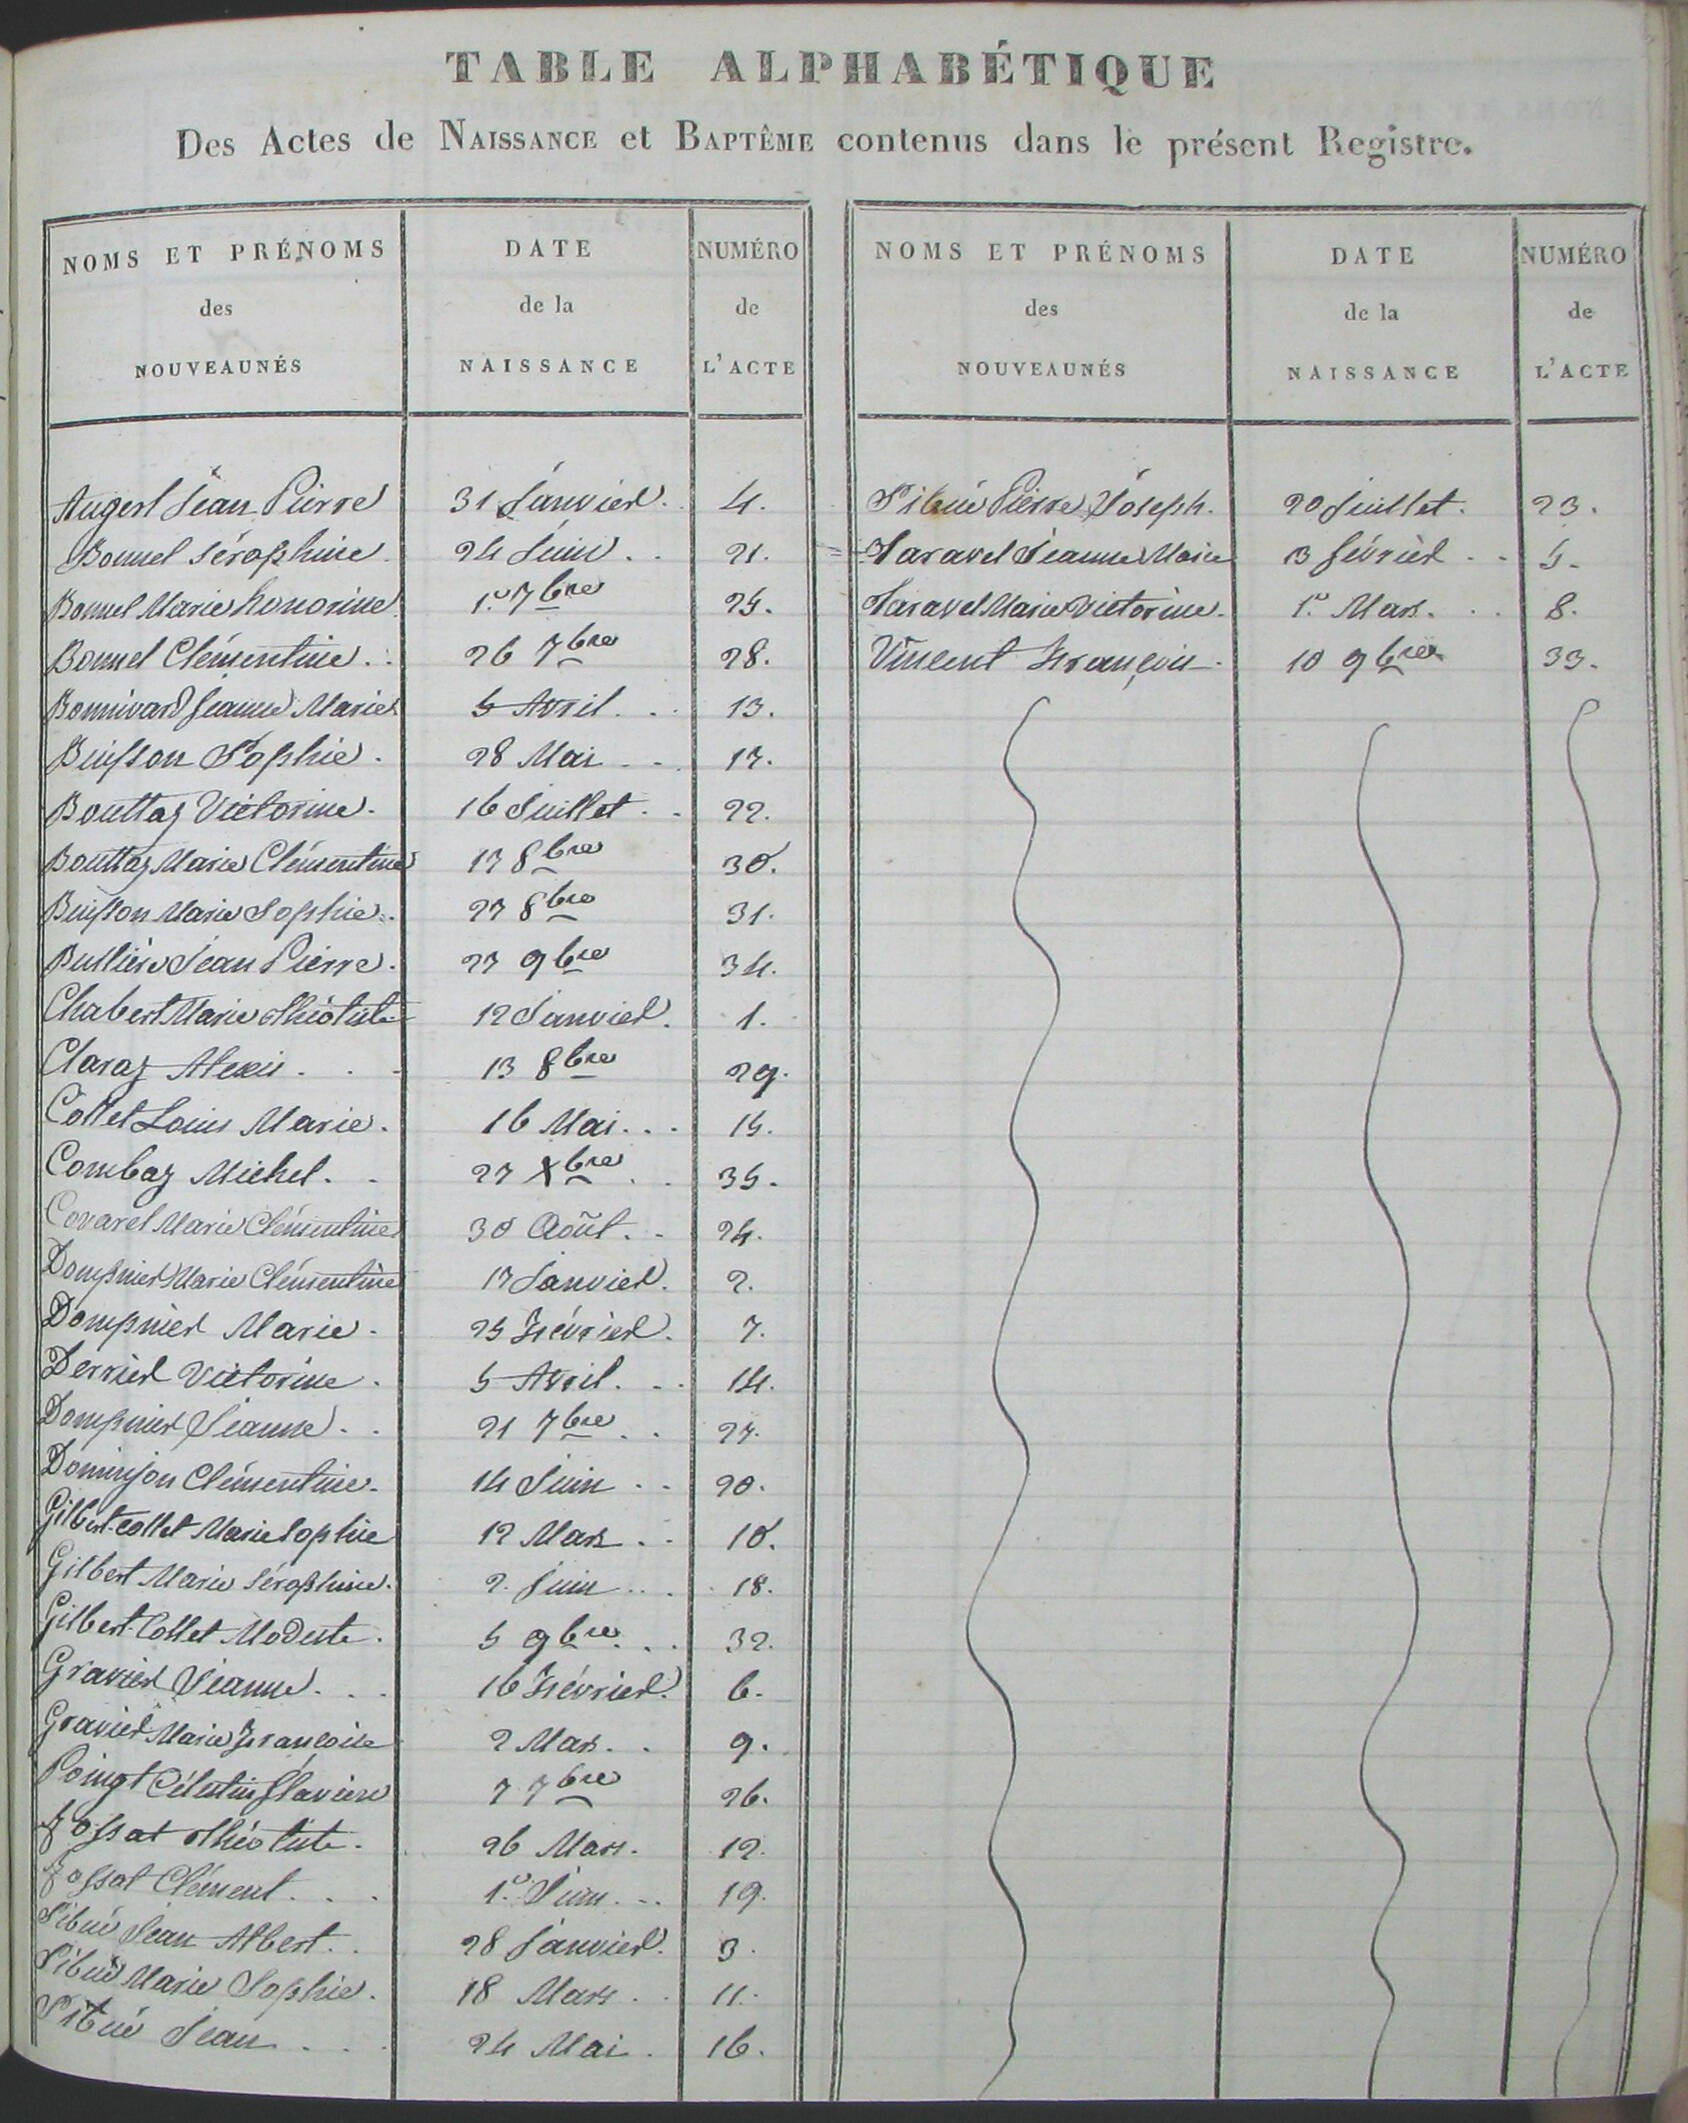 TABLE ALPHABÉTIQUE
Des Actes de NAISSANCE et BAPTÊME contenus dans le présent Registre.
NOMS ET PRÉNOMS des NOUVEAUNÉS | DATE de la NAISSANCE | NUMÉRO de L'ACTE
Augert Jean Pierre 31 Janvier. 4.
Bonnel Séraphine. 24 Juin. . 21.
Bonnel Marie honorine. 1er 7bre 25.
Bonnel Clémentine. . 26 7bre 28.
Bonnivard Jeanne Marie 5 Avril. . 13.
Buisson Sophie. 28 Mai . . 17.
Bouttaz Victorine. 16 Juillet . . 22.
Bouttaz Marie Clémentine 17 8bre 30.
Buisson Marie Sophie. 27 8bre 31.
Bullière Jean Pierre. 27 9bre 34.
Chabert Marie Théotiste 12 Janvier. 1.
Claraz Alexis . . . 13 8bre 29.
Collet Louis Marie. 16 Mai. . . 15.
Combaz Michel. . 27 Xbre . . 35.
Covarel Marie Clémentine 30 Août. . 24.
Dompnier Marie Clémentine 17 Janvier. 2.
Dompnier Marie. 25 Février. 7.
Derrier Victorine. 5 Avril. . . 14.
Dompnier Jeanne. . 21 7bre . . 27.
Dominjon Clémentine. 14 Juin . . 20.
Gilbert-Collet Marie Sophie 12 Mars . . 10.
Gilbert Marie Séraphine. 2. Juin . . . 18.
Gilbert-Collet Modeste. 5 9bre . . 32.
Gravier Jeanne. . . 16 Février. 6.
Gravier Marie Françoise 2 Mars. . 9.
Poingt Célestin 7 7bre 26.
Théotiste. 26 Mars. 12.
Clément. . . 1er Juin. . . 19.
Sibué Jean Albert. . 28 Janvier. 3.
Sibué Marie Sophie. 18 Mars . . 11.
Sibué Jean . . . 24 Mai. 16.
NOMS ET PRÉNOMS des NOUVEAUNÉS | DATE de la NAISSANCE | NUMÉRO de L'ACTE
Sibué Pierre Joseph. 20 Juillet. 23.
Taravel Jeanne Marie 3 février . . 5.
Taravel Marie Victorine. 1er Mars. . . 8.
Vincent François. 10 9bre 33.